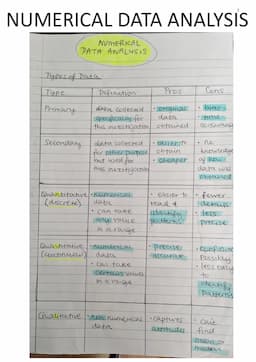 NUMERICAL DATA ANALYSIS
NUMERICAL
DATA ANALYSIS
Types of Data
Type Definition Pros Cons
Primary data collected specifically for this investigation • original data obtained • time
Secondary data collected for other purpose but used for this investigation • easier to obtain • cheaper • no knowledge of how data was obtained
Quantitative (discrete) • numerical data • can take values in a range • easier to read & identify patterns • fewer details • less precise
Quantitative • numerical data • can take values in a range • precise • less easy to identify patterns
Qualitative numerical data • captures attitudes • can't find